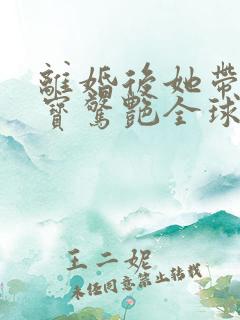 離婚後她帶
寶驚艷全球
王二妮
未經同意禁止轉載